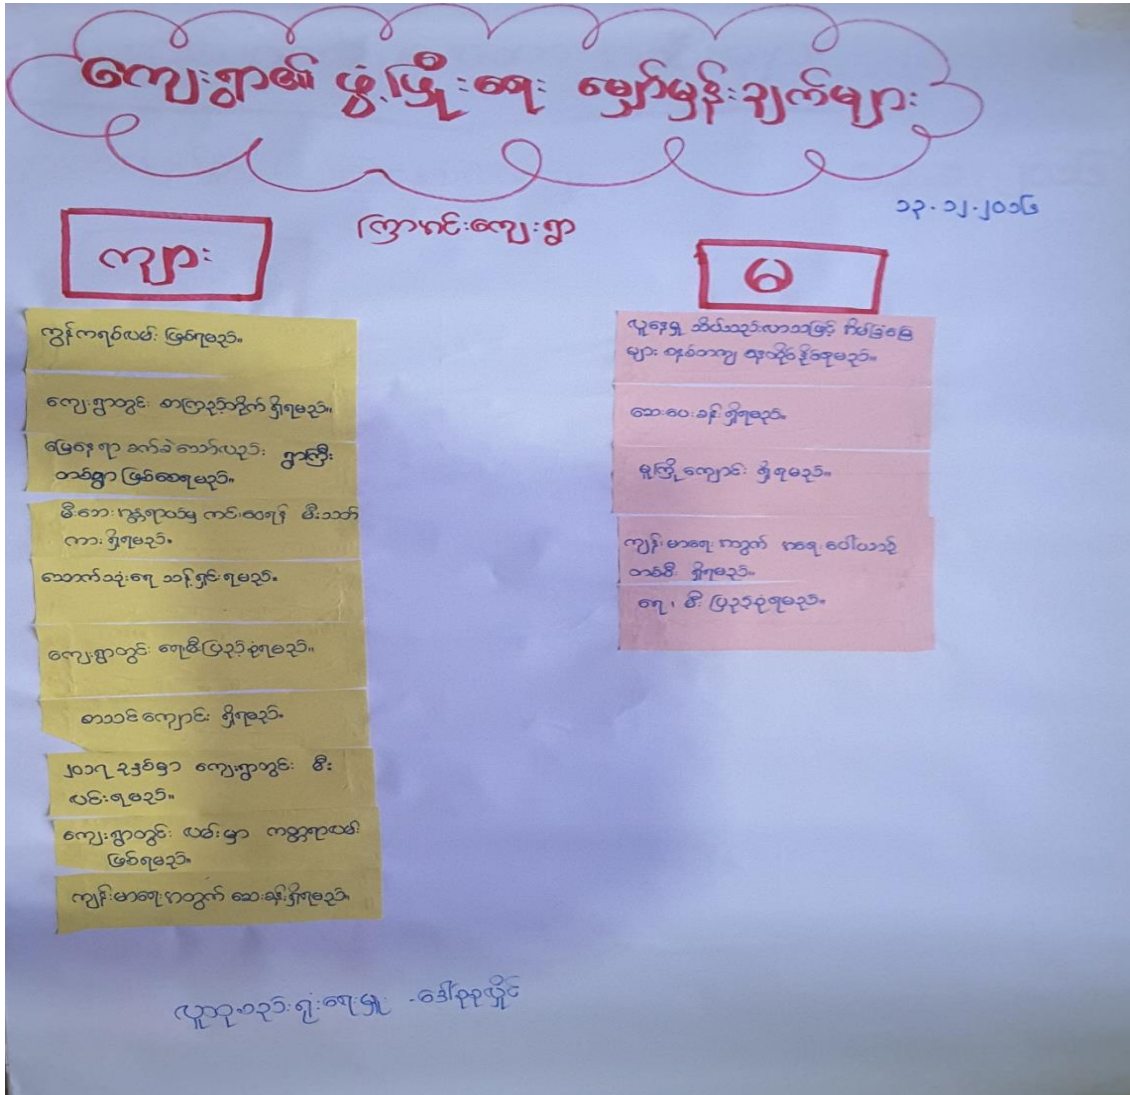 ကျေးရွာ၏ ဖွံ့ဖြိုးရေး မျှော်မှန်းချက်များ
၁၃.၁၂.၂၀၁၆
ကြာအင်းကျေးရွာ
ကျား
ကွန်ကရစ်လမ်း ဖြစ်ရမည်။
ကျေးရွာတွင်း စာကြည့်တိုက် ရှိရမည်။
မြေနေရာ ခက်ခဲသော်လည်း ရွာကြီး
တစ်ရွာ ဖြစ်စေရမည်။
မီးဘေး အန္တရာယ်မှ ကင်းဝေးရန် မီးသတ်
ကား ရှိရမည်။
သောက်သုံးရေ သန့်ရှင်းရမည်။
ကျေးရွာတွင်း ရေမီးပြည့်စုံရမည်။
စာသင်ကျောင်း ရှိရမည်။
၂၀၁၇ ခုနှစ်မှာ ကျေးရွာတွင်း မီး
လင်းရမည်။
ကျေးရွာတွင်း လမ်းမှာ ကတ္တရာလမ်း
ဖြစ်ရမည်။
ကျန်းမာရေးအတွက် ဆေးခန်းရှိရမည်။
မ
လူနေမှု သိပ်သည်းလာသဖြင့် အိမ်ခြံမြေ
များ စနစ်တကျ နေထိုင်နိုင်ရမည်။
ဆေးပေးခန်း ရှိရမည်။
မူကြို ကျောင်း ရှိရမည်။
ကျန်းမာရေး အတွက် အရေးပေါ်ယာဉ်
တစ်စီး ရှိရမည်။
ရေ၊ မီး ပြည့်စုံရမည်။
လူထုစည်းရုံးရေးမှူး - ဒေါ်ခုခုလှိုင်